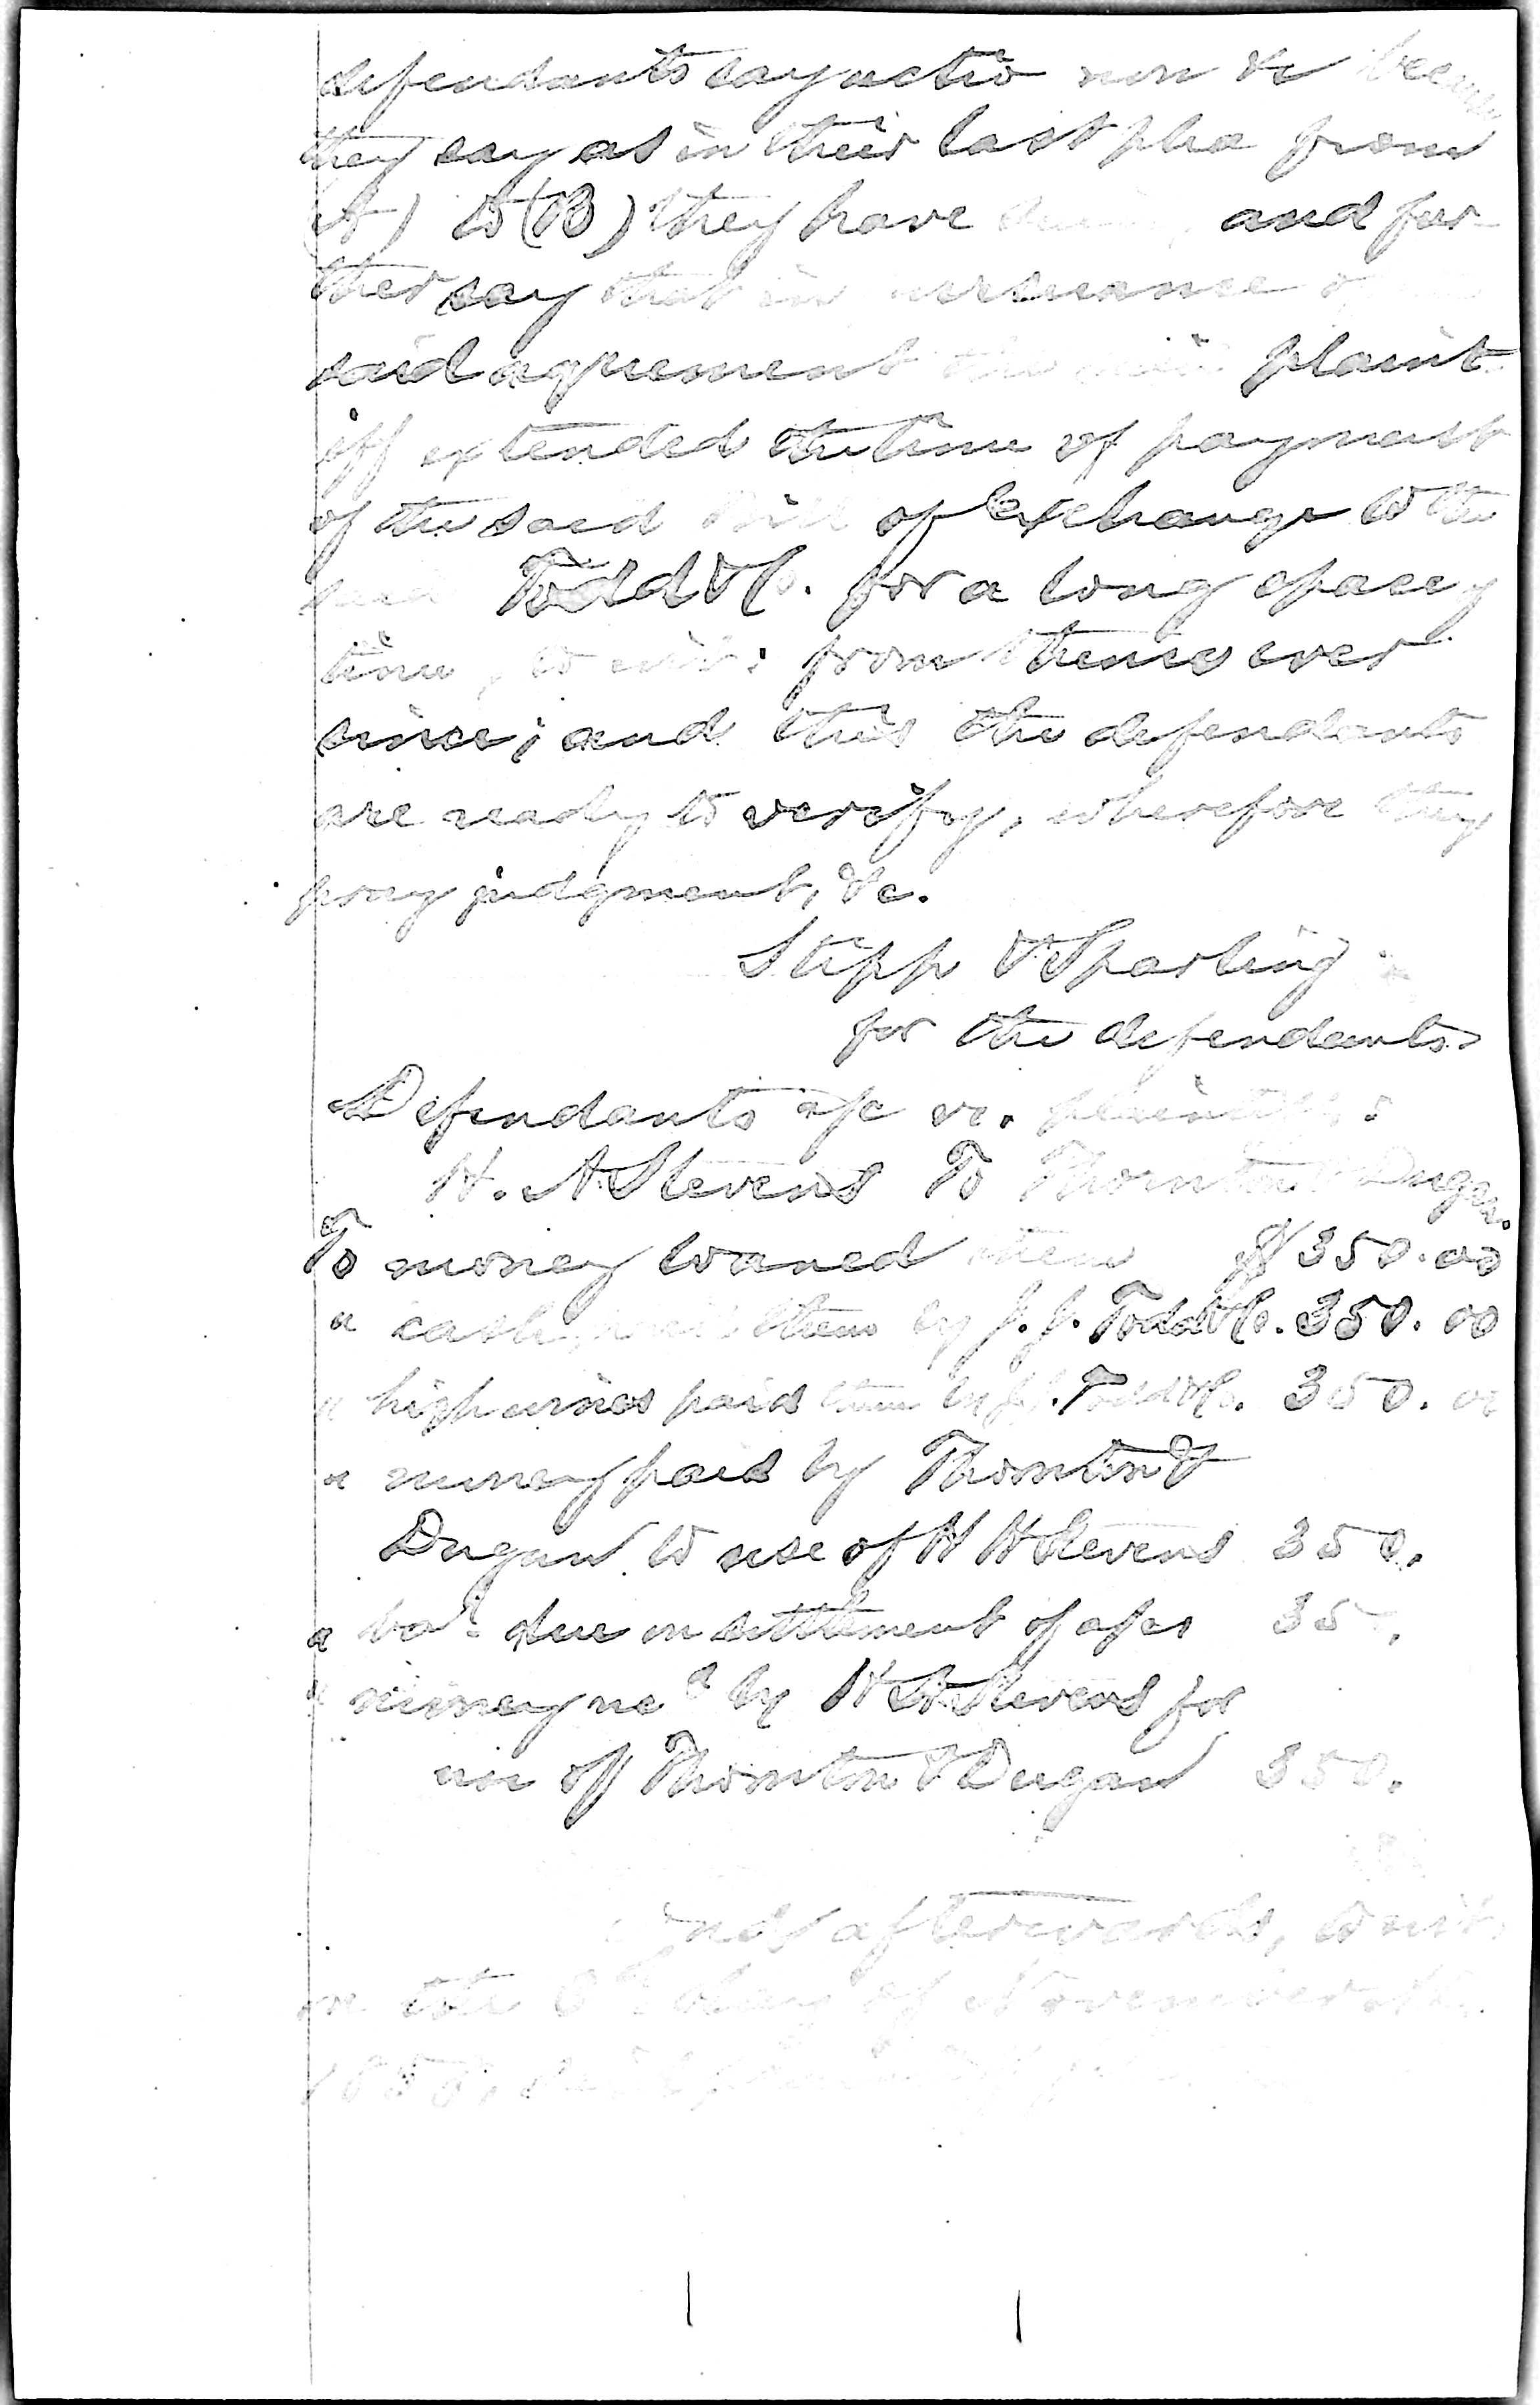 defendants say actio non &c because
they say as in their last plea from
(A) to (B) they have and fur-
ther say that in pursuance of
said agreement the said plaint-
iff extended the time of payment
of the said bill of exchange to the
said Todd & Co. for a long space of
time, to wit: from thence ever
since; and this the defendants
are ready to verify, wherefore they
pray judgment, &c.
Stipp & Sparling
for the defendants.
Defendants a/c vs. plaintiffs:
H. A Stevens To Thornton & Dugan.
To money loaned them $350.00
" cash paid them by J. J. Todd & Co. 350.00
" paid them by J. J. Todd & Co. 350.00
" money paid by Thornton &
Dugan to use of H A Stevens 350.
" bal due on settlement of a/cs 35
" money recd by H A Stevens for
use of Thornton & Dugan 350.
And afterwards, to wit,
on the day of November